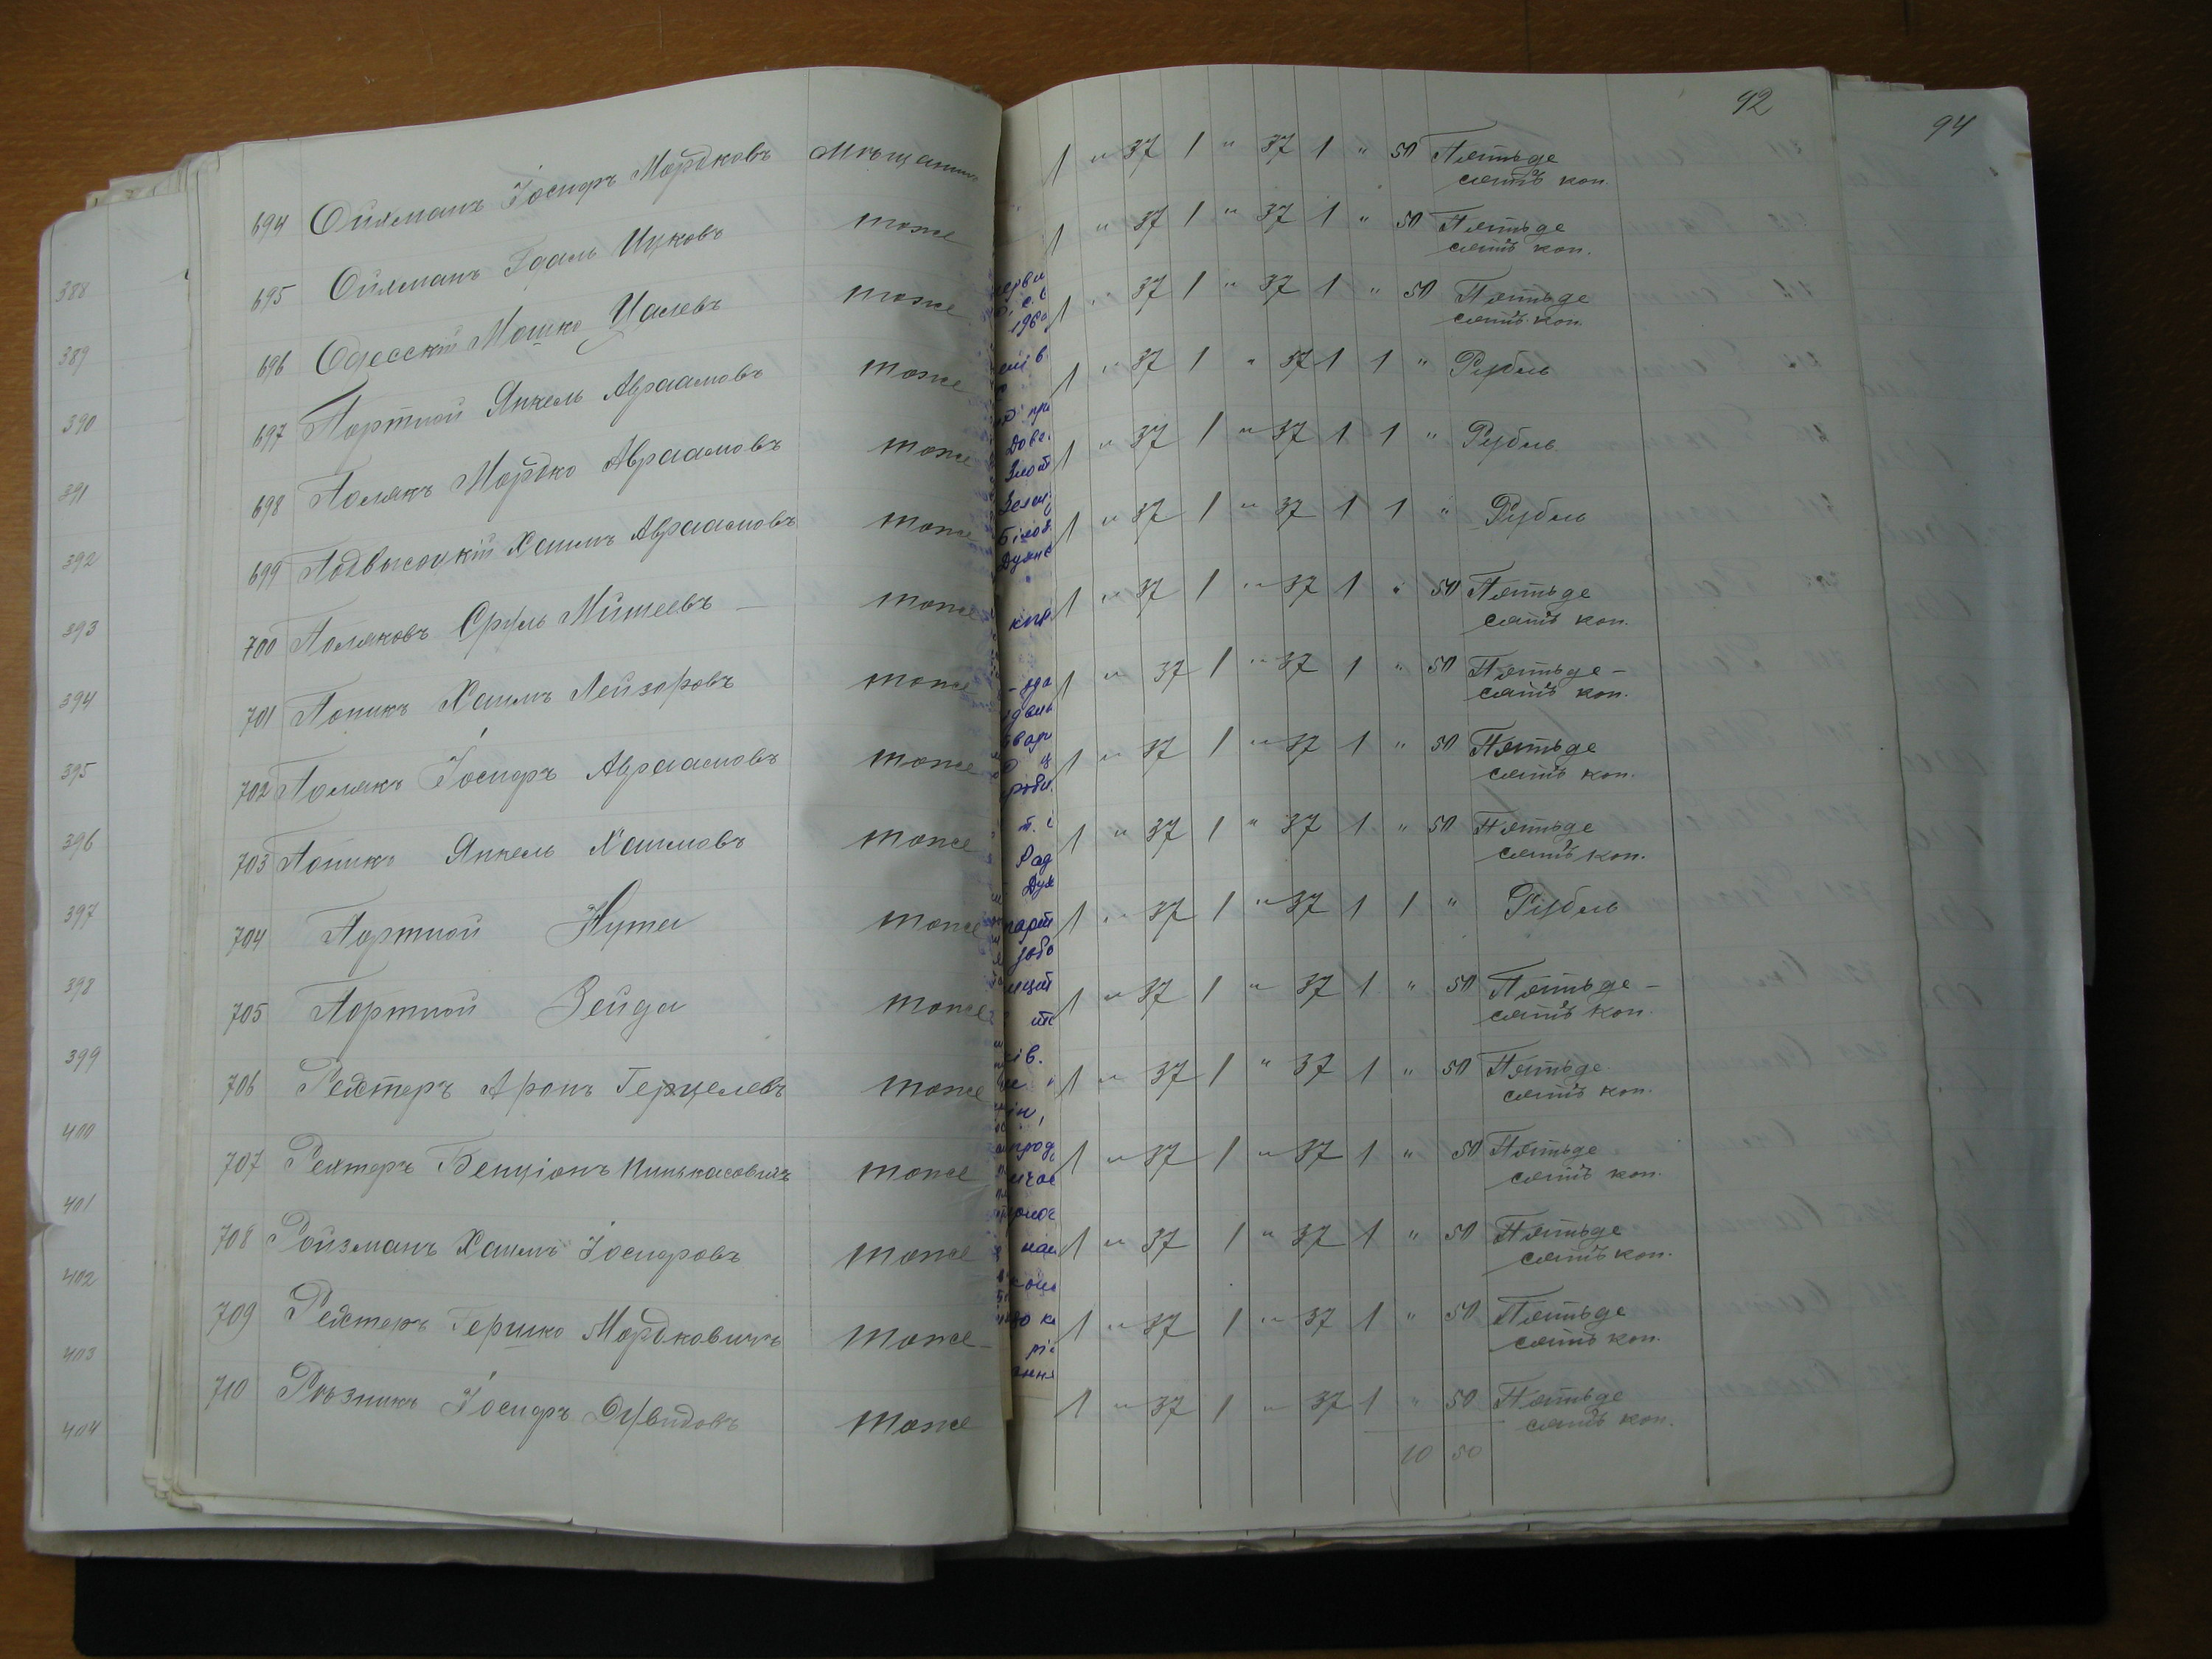 92
94
694 Ойхманъ Іосифъ Мордковъ Мѣщанинъ 1 " 37 1 " 37 1 " 50 Пятьде
сятъ коп.
695 Ойхманъ Идаль Ицковъ тоже 1 " 37 1 " 37 1 " 50 Пятьде
сятъ коп.
696 Одесскій Мошко Цалевъ тоже 1 " 37 1 " 37 1 " 50 Пятьде
сятъ коп.
697 Портной Янкель Авраамовъ тоже 1 " 37 1 " 37 1 1 " Рубль
698 Полякъ Мордко Авраамовъ тоже 1 " 37 1 " 37 1 1 " Рубль
699 Подвысоцкій Хаимъ Авраамовъ тоже 1 " 37 1 " 37 1 1 " Рубль
700 Поляковъ Сруль тоже 1 " 37 1 " 37 1 " 50 Пятьде
сятъ коп.
701 Попикъ Хаимъ Лейзоровъ тоже 1 " 37 1 " 37 1 " 50 Пятьде-
сятъ коп.
702 Полякъ Іосифъ Авраамовъ тоже 1 " 37 1 " 37 1 " 50 Пятьде
сятъ коп.
703 Попикъ Янкель Хаимовъ тоже 1 " 37 1 " 37 1 " 50 Пятьде
сятъ коп.
704 Портной Нута тоже 1 " 37 1 " 37 1 1 " Рубль
705 Портной Зейда тоже 1 " 37 1 " 37 1 " 50 Пятьде-
сятъ коп.
706 Рехтеръ Аронъ Герцелевъ тоже 1 " 37 1 " 37 1 " 50 Пятьде
сятъ коп.
707 Рехтеръ Бенціонъ Пинькасовичъ тоже 1 " 37 1 " 37 1 " 50 Пятьде
сятъ коп.
708 Ройзманъ Хаимъ Іосифовъ тоже 1 " 37 1 " 37 1 " 50 Пятьде
сятъ коп.
709 Рехтеръ Гершко Мордковичъ тоже 1 " 37 1 " 37 1 " 50 Пятьде
сятъ коп.
710 Рѣзникъ Іосифъ Дувидовъ тоже 1 " 37 1 " 37 1 " 50 Пятьде
сятъ коп.
10 50
388
389
390
391
392
393
394
395
396
397
398
399
400
401
402
403
404